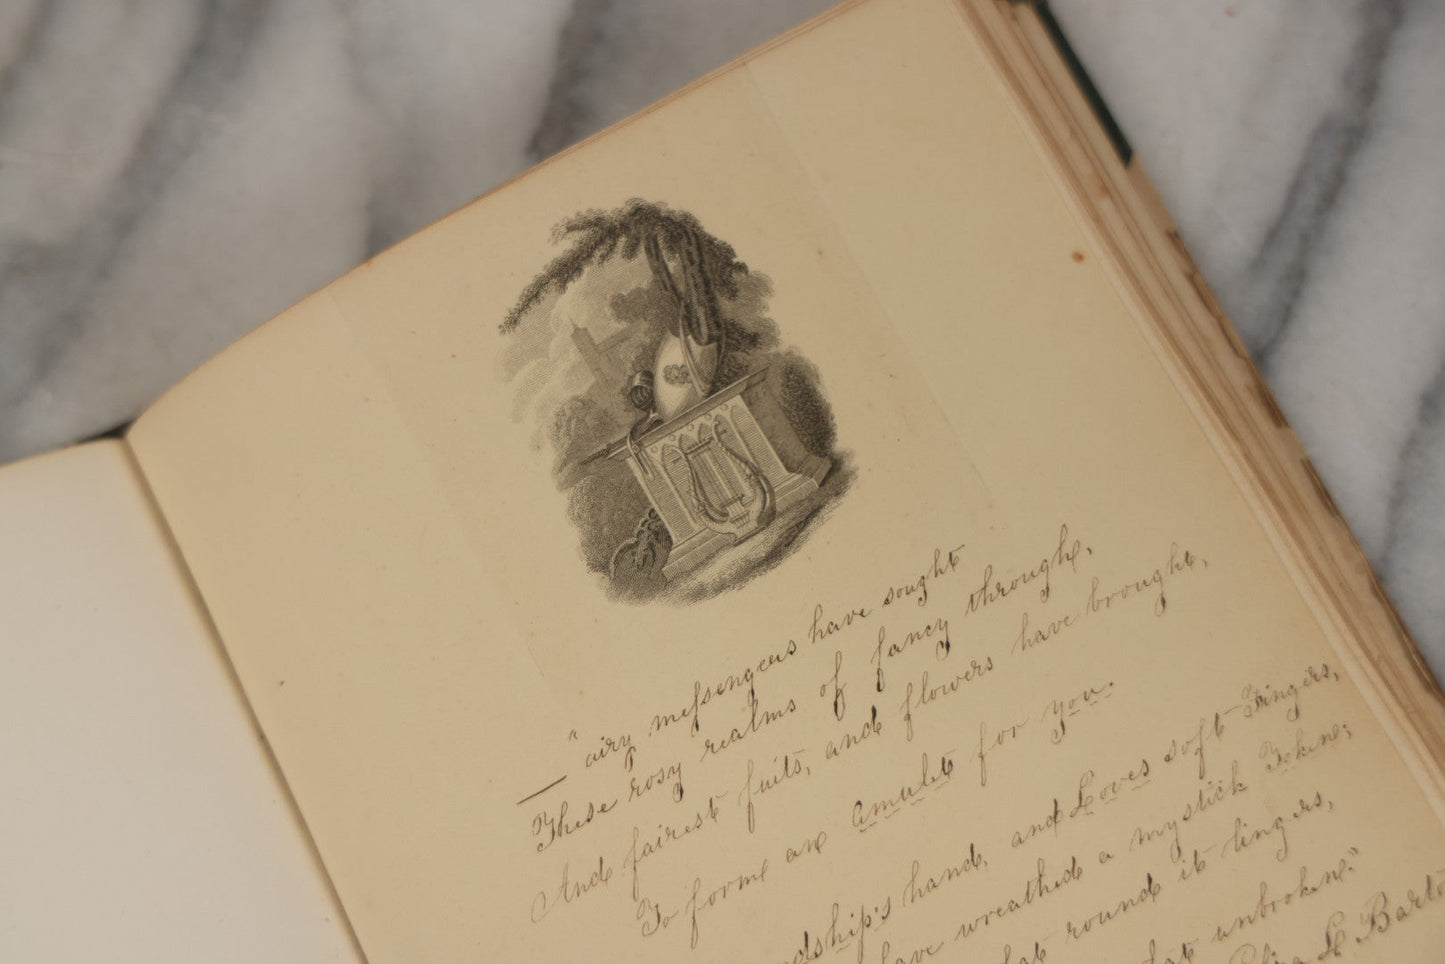 — "airy messengers have sought
These rosy realms of fancy through,
And fairest fuits, and flowers have brought,
To form an amulet for you.
hand, and Loves soft Fingers,
have wreathed a mystick Token;
round it lingers,
unbroken."
L Barto